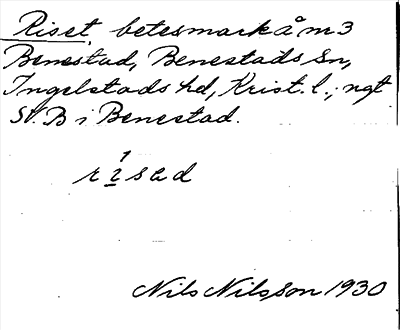 Riset, betesmark å m 3
Benestad, Benestads sn,
Ingelstads hd, Krist. l.; ngt
SV. B i Benestad.
rísad
Nils Nilsson 1930